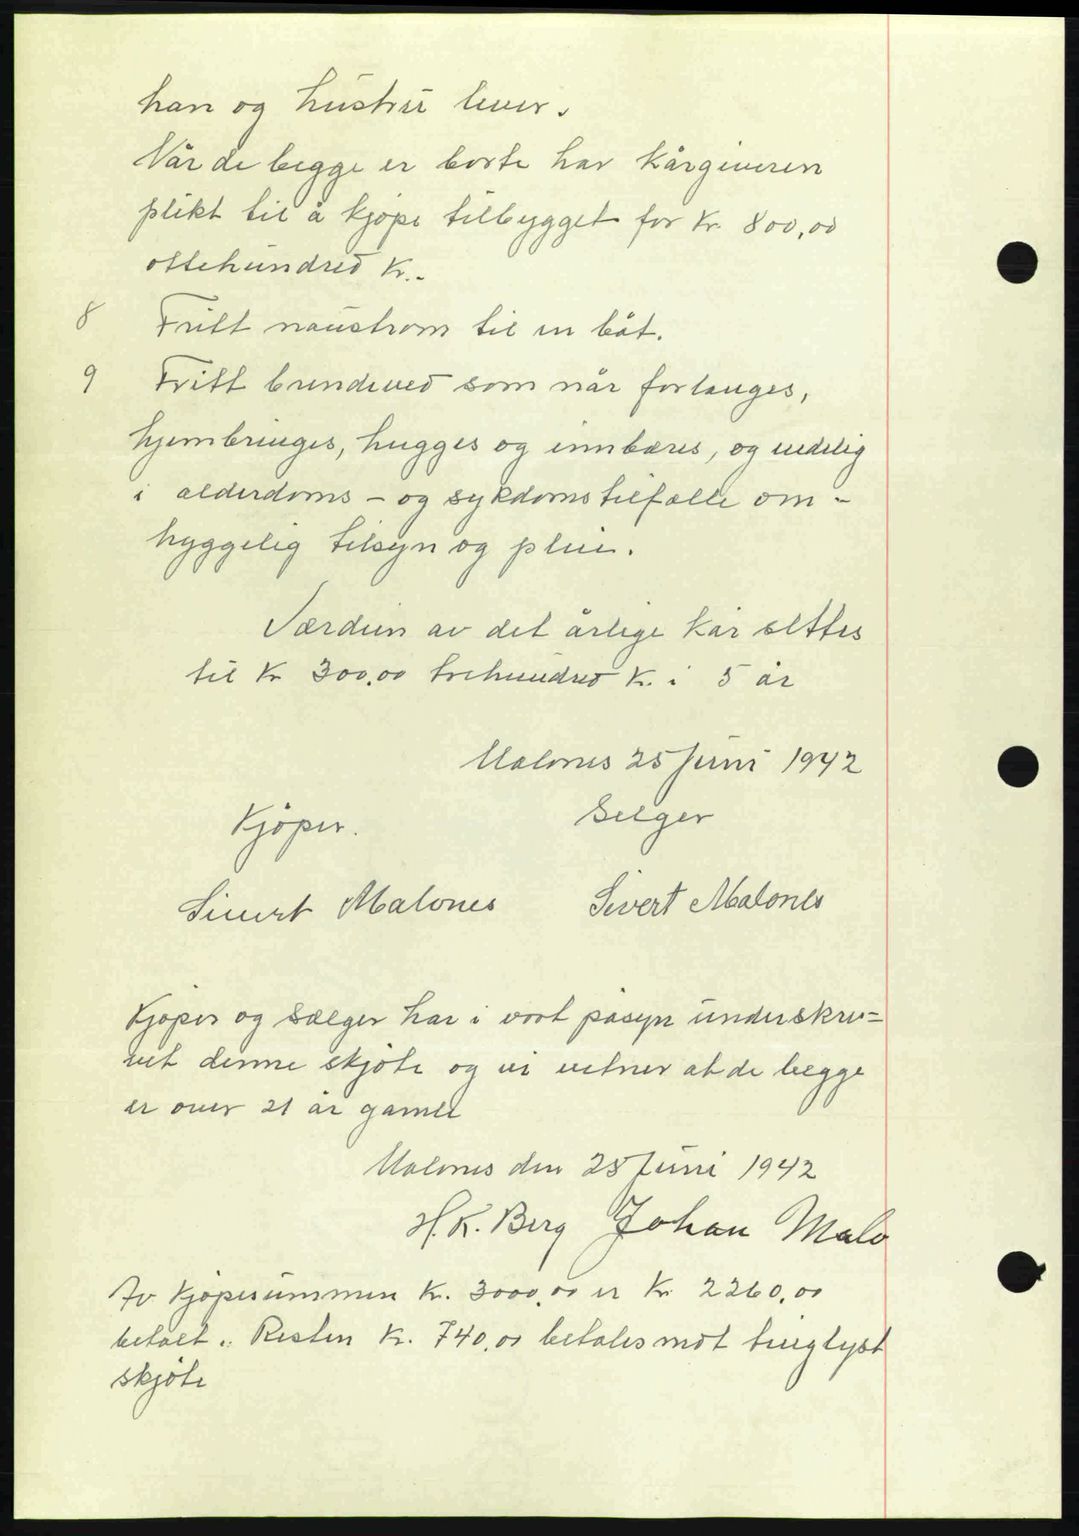 han og hustru lever.
Når de begge er borte har kårgiveren
plikt til å kjöpe tilbygget for Kr. 800,00
ottehundred Kr.-
8 Fritt naustrom til en båt.
9 Fritt brendeved som når forlanges,
hjembringes, hugges og innbæres, og endelig
i alderdoms - og sykdomstilfælle om-
hyggelig tilsyn og pleie.
Værdien av det årlige kår settes
til Kr 300,00 trehundred K. i 5 år
Malones 25 Juni 1942
Kjöper. Selger
Sivert Malones Sivert Malones
Kjöper og Sælger har i vort påsyn underskre=
vet denne skjöte og vi vetner at de begge
er over 21 år gamle
Malones den 25 Juni 1942
H. K. Berg Johan Malo
Av Kjöpesummen Kr. 3000,00 er Kr 2260,00
betalt. Resten Kr. 740,00 betales mot tinglyst
skjöte